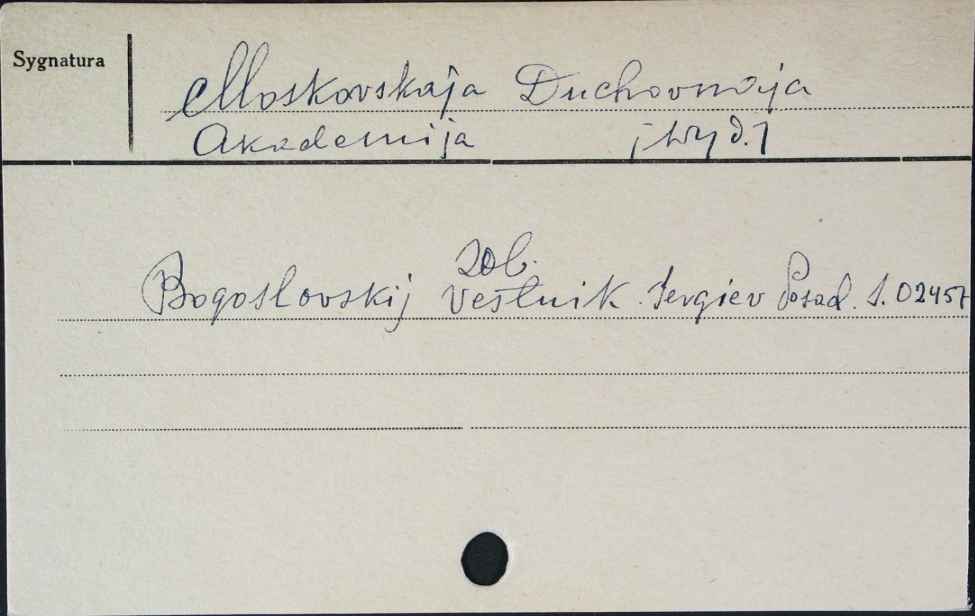 Sygnatura
Moskovskaja Duchovnaja
Akademija [wyd.]
zob.
Bogoslovskij Vestnik. Sergiev Posad. S. 02457